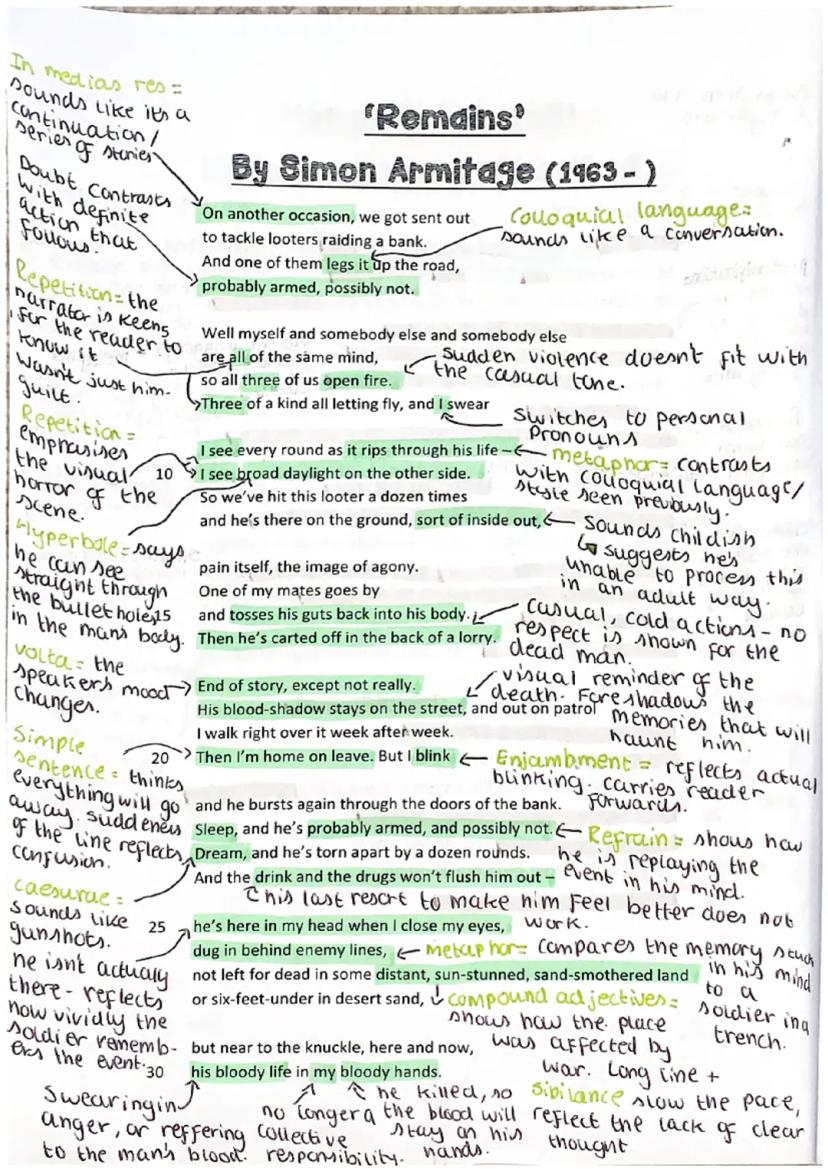 'Remains'
By Simon Armitage (1963 - )
In medias res =
sounds like its a
continuation/
series of stories
Doubt contrasts
with definite
action that
follows.
On another occasion, we got sent out
to tackle looters raiding a bank.
And one of them legs it up the road,
probably armed, possibly not.
Colloquial language=
sounds like a conversation.
Repetition= the
narrator is keens
for the reader to
know it
wasn't just him-
guilt.
Well myself and somebody else and somebody else
are all of the same mind,
so all three of us open fire.
Three of a kind all letting fly, and I swear
Sudden violence doesn't fit with
the casual tone.
Switches to personal
pronouns
Repetition =
emphasises
the visual
horror of the
scene.
I see every round as it rips through his life –
10 I see broad daylight on the other side.
So we've hit this looter a dozen times
and he's there on the ground, sort of inside out,
metaphor= contrasts
with colloquial language/
style seen previously.
Sounds childish
↳ suggests hes
unable to process this
in an adult way.
Hyperbole= says
he can see
straight through
the bullet holes
in the mans body.
pain itself, the image of agony.
One of my mates goes by
15 and tosses his guts back into his body.
Then he's carted off in the back of a lorry.
casual, cold actions – no
respect is shown for the
dead man.
volta = the
speakers mood
changes.
End of story, except not really.
His blood-shadow stays on the street, and out on patrol
I walk right over it week after week.
20 Then I'm home on leave. But I blink
visual reminder of the
death. Foreshadows the
memories that will
haunt him.
Simple
sentence = thinks
everything will go
away. suddeness
of the line reflects
confusion.
Enjambment = reflects actual
blinking, carries reader
forwards.
and he bursts again through the doors of the bank.
Sleep, and he's probably armed, and possibly not.
Dream, and he's torn apart by a dozen rounds.
And the drink and the drugs won't flush him out –
Refrain = shows how
he is replaying the
event in his mind.
his last resort to make him feel better does not
work.
caesurae =
sounds like
gunshots.
he isn't actually
there- reflects
how vividly the
soldier rememb-
ers the event.
25 he's here in my head when I close my eyes,
dug in behind enemy lines,
not left for dead in some distant, sun-stunned, sand-smothered land
or six-feet-under in desert sand,
metaphor= compares the memory stuck
in his mind
to a
soldier in a
trench.
compound adjectives=
shows how the place
was affected by
war. Long line +
Sibilance slow the pace,
reflect the lack of clear
thought
but near to the knuckle, here and now,
30 his bloody life in my bloody hands.
Swearing in
anger, or reffering
to the man's blood.
no longer a
collective
responsibility.
he killed, so
the blood will
stay on his
hands.